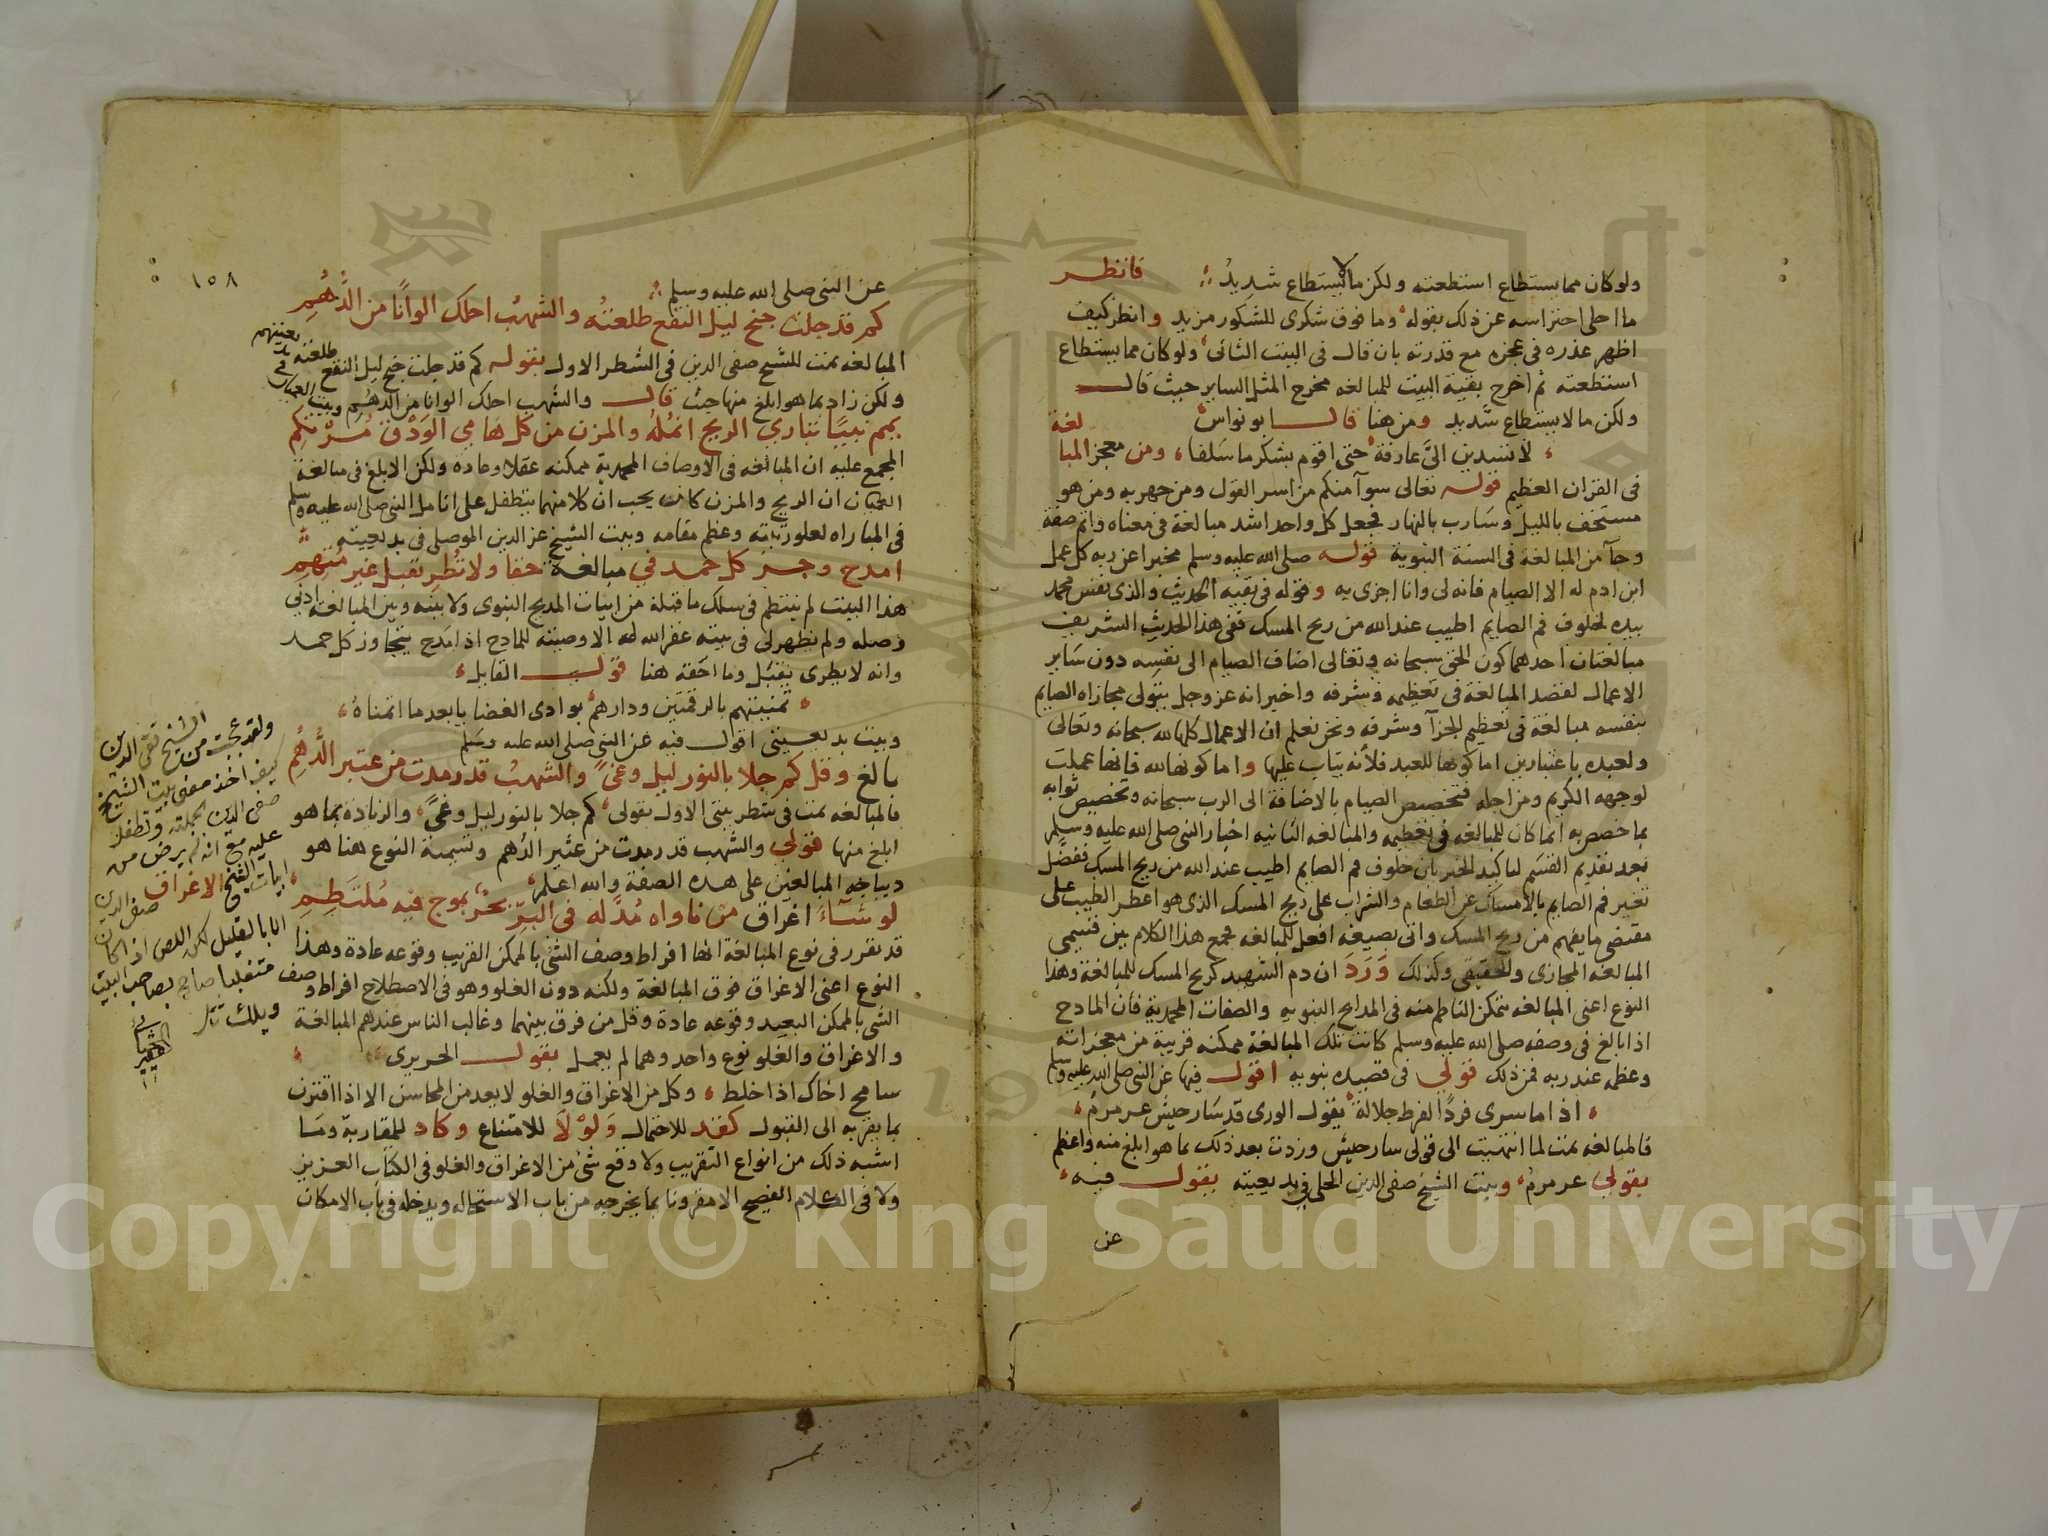 ولو كان مما يستطاع استطعته ولكن ما لا يستطاع شديد فانظر
ما احلى احتراسه عن ذلك بقوله وما فوق شكرى للشكور مزيد وانظر كيف
اظهر عذره فى عجزه مع قدرته بان قال فى البيت الثانى ولو كان مما يستطاع
استطعته ثم اخرج بقية البيت للمبالغه مخرج المثل الساير حيث قال
ولكن ما لا يستطاع شديد ومن هنا قال ابو نواس
لا تسدين الىّ عارفة حتى اقوم بشكر ما سلفا ومن معجز المبا لغة
فى القران العظيم قوله تعالى سوآ منكم من اسر القول ومن جهر به ومن هو
مستخف بالليل وسارب بالنهار فجعل كل واحد اشد مبالغة فى معناه واتم صفة
وجآ من المبالغة فى السنة النبوية قوله صلى الله عليه وسلم مخبرا عن ربه كل عمل
ابن ادم له الا الصيام فانه لى وانا اجزى به وقوله فى بقية الحديث والذى نفس محمد
بيده لخلوف فم الصايم اطيب عند الله من ريح المسك ففى هذا الحديث الشريف
مبالغتان احدهما كون الحق سبحانه وتعالى اضاف الصيام الى نفسه دون ساير
الاعمال لقصد المبالغة فى تعظيمه وشرفه واخبر انه عز وجل يتولى مجازاه الصايم
بنفسه مبالغة فى تعظيم الجزآ وشرفه ونحن نعلم ان الاعمال كلها لله سبحانه وتعالى
ولعبده باعتبارين اما كونها للعبد فلأنه يثاب عليها واما كونها لله فانها عملت
لوجهه الكريم ومن اجله فتخصيص الصيام بالاضافة الى الرب سبحانه وتخصيص ثوابه
بما خصص به انما كان للمبالغه فى تعظيمه والمبالغه الثانيه اخبار النبى صلى الله عليه وسلم
بعد تقديم القسم لتاكيد الخبر بان خلوف فم الصايم اطيب عند الله من ريح المسك ففضل
تغيير فم الصايم بالامساك عن الطعام والشراب على ريح المسك الذى هو اعطر الطيب على
مقتضى ما يفهم من ريح المسك واتى بصيغة افعل للمبالغه فجمع هذا الكلام بين قسمى
المبالغه المجازى والحقيقى وكذلك وَرَدَ ان دم الشهيد كريح المسك للمبالغة وهذا
النوع اعنى المبالغه متمكن الناظم منه فى المدايح النبويه والصفات المحمدية فان المادح
اذا بالغ فى وصفه صلى الله عليه وسلم كانت تلك المبالغة ممكنه قريبة من معجزاته
وعظمه عند ربه فمن ذلك قولى فى قصيده نبويه اقول فيها عن النبى صلى الله عليه وسلم
اذا ما سرى فردًا لفرط جلالة يقول الورى قد سار جيش عرمرم
فالمبالغه تمت لما انتهيت الى قولى سار جيش وزدت بعد ذلك بما هو ابلغ منه واعظم
بقولى عرمرم وبيت الشيخ صفى الدين الحلى فى بديعيته يقول فيه
عن
١٥٨
عن النبى صلى الله عليه وسلم
كم قد جلت جنح ليل النقع طلعته والشهب احلك الوانًا من الدُّهُمِ
المبالغه تمت للشيخ صفى الدين فى الشطر الاول بقوله كم قد جلت جنح ليل النقع طلعته
ولكن زاد بما هو ابلغ منها حيث قال والشهب احلك الوانا من الدهُم وبيت العميان فى بديعيتهم
يمم نبيًا تبارى الريح انمُلُه والمزن من كل هامى الوَدْق مُرْتكِم
المجمع عليه ان المبالغه فى الاوصاف المحمدية ممكنه عقلا وعادة ولكن الابلغ فى مبالغة
العميان ان الريح والمزن كانت يجب ان كلا منهما يتطفل على انامل النبى صلى الله عليه وسلم
فى المباراه لعلو رتبته وعظم مقامه وبيت الشيخ عز الدين الموصلى فى بديعيته
امدح وجز كل حمد فى مبالغة حقا ولا تُطرِ تقبل غير مُتهمِ
هذا البيت لم ينتظم فى سلك ما قبله من ابيات المديح النبوى ولا بينه وبين المبالغة ادنى
وصله ولم يظهر لى فى بيته غفر الله له الا وصيته للمادح اذا مدح يتجاوز كل حمد
وانه لا يطرى يقبل وما احقه هنا بقول القايل
تمنيتهم بالرقمتين ودارهم بوادى الغضا يا بعد ما اتمناهُ
وبيت بديعيتى اقول فيه عن النبى صلى الله عليه وسلم
بالغ وقل كم جلا بالنور ليل وغىً والشهبُ قد رمدت من عثير الدُّهُمِ
فالمبالغه تمت فى شطر بيتى الاول بقولى كم جلا بالنور ليل وغىً والزيادة بما هو
ابلغ منها قولى والشهب قد رمدت من عثير الدُهم وتسمية النوع هنا هو
ديباجه المبالغين على هذه الصفة والله اعلم
لو شآء اغراق من ناواه مُدَّ له فى البرِّ بحرٌ بموج فيه مُلتَطِمِ
قد تقرر فى نوع المبالغة انها افراط وصف الشئ بالممكن القريب وقوعه عادة وهذا
النوع اعنى الاغراق فوق المبالغة ولكنه دون الغلو وهو فى الاصطلاح افراط وصف
الشى بالممكن البعيد وقوعه عادة وقل من فرق بينهما وغالب الناس عندهم المبالغة
والاغراق والغلو نوع واحد وهما لم يعمل بقول الحريرى
سامح اخاك اذا خلط وكل من الاغراق والغلو لا يعد من المحاسن الا اذا اقترن
بما يقربه الى القبول كقد للاحتمال وَلوْلَا للامتناع وكاد للمقاربة وما
اشبه ذلك من انواع التقريب ولا وقع شئ من الاغراق والغلو فى الكتاب العزيز
ولا فى الكلام الفصيح الا مقرونا بما يخرجه من باب الاستحاله ويدخله فى باب الامكان
ولقد عجبت من الشيخ تقى الدين
كيف اخذ معنى بيت الشيخ
صفى الدين بجملته وتطفل
عليه مع انه لم يرض من
ابيات الشيخ صفى الدين
الا بالقليل لكن اللص اذا كان
الاغراق
Copyright © King Saud University